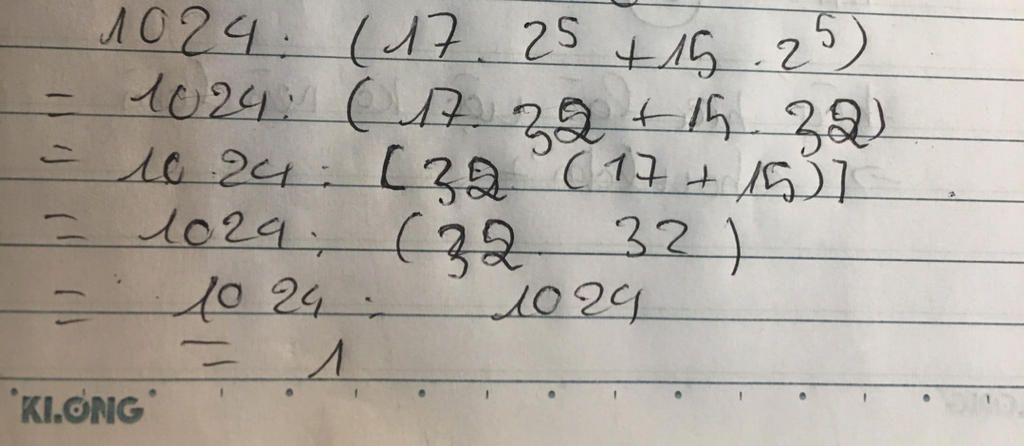 1024 : (17 . 2⁵ + 15 . 2⁵)
= 1024 : (17 . 32 + 15 . 32)
= 1024 : [32 (17 + 15)]
= 1024 : (32 . 32)
= 1024 : 1024
= 1
KLONG